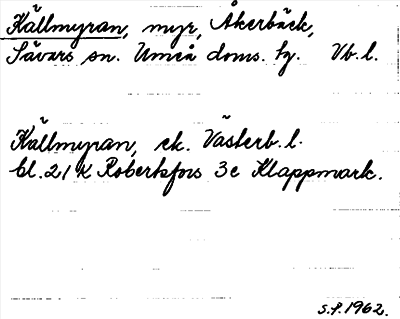 Källmyran, myr, Åkerbäck,
Sävars sn. Umeå doms. tg. Vb.l.
Källmyran, ek. Västerb. l.
bl. 21 K Robertsfors 3 c Klappmark.
S.P. 1962.